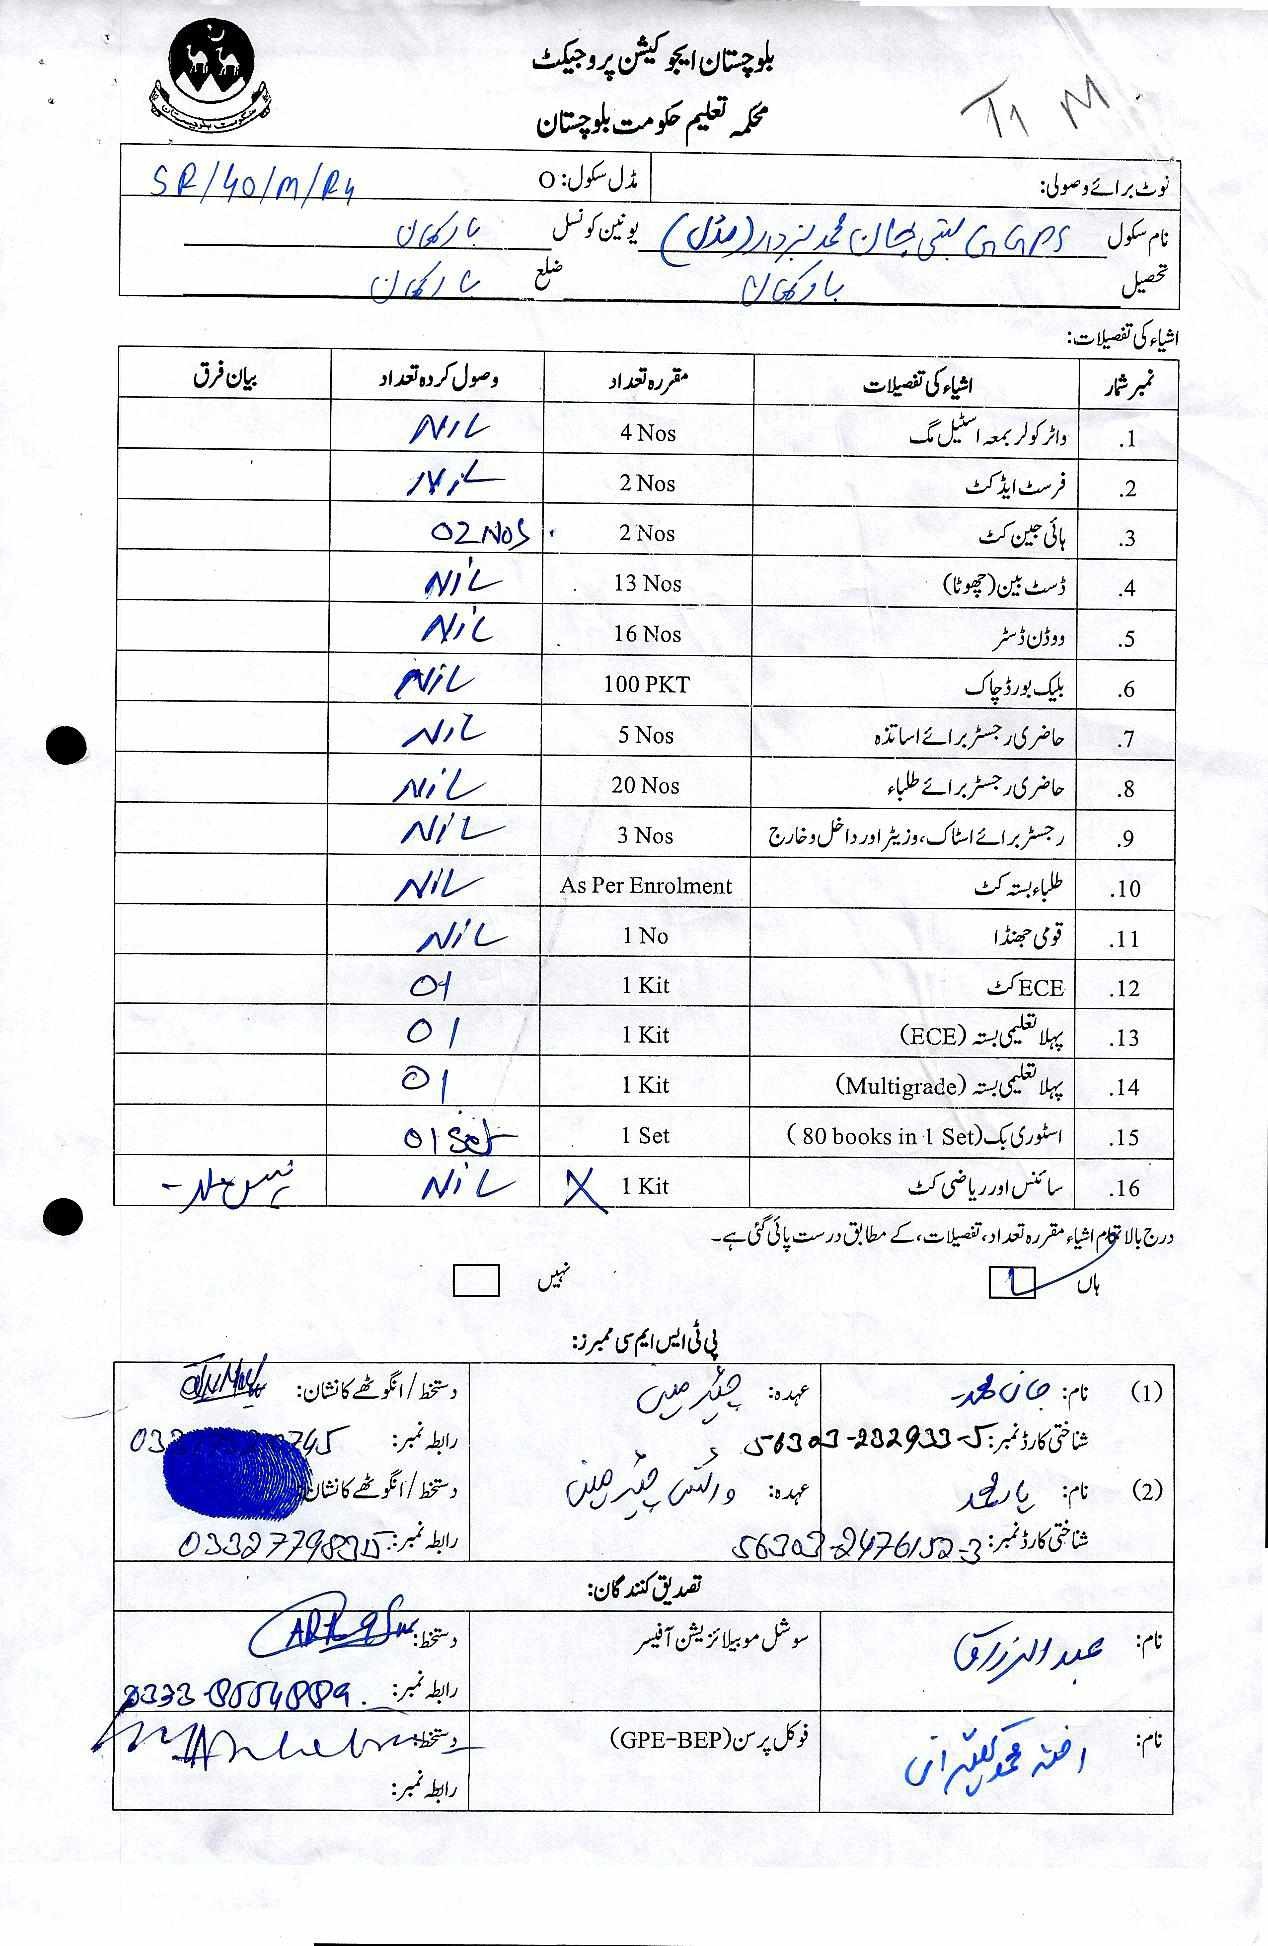 بلوچستان ایجوکیشن پروجیکٹ
محکمہ تعلیم حکومت بلوچستان
T1 M
نوٹ برائے وصولی: مڈل سکول: O SR/40/M/R4
نام سکول GGPS بستی جان محمد بزدار (مڈل) یونین کونسل بارکھان
تحصیل بارکھان ضلع بارکھان
اشیاء کی تفصیلات:
نمبر شمار اشیاء کی تفصیلات مقررہ تعداد وصول کردہ تعداد بیان فرق
1. واٹر کولر بمعہ اسٹیل مگ 4 Nos NIL
2. فرسٹ ایڈ کٹ 2 Nos NIL
3. ہائی جین کٹ 2 Nos 02 Nos
4. ڈسٹ بین (چھوٹا) 13 Nos NIL
5. ووڈن ڈسٹر 16 Nos NIL
6. بلیک بورڈ چاک 100 PKT NIL
7. حاضری رجسٹر برائے اساتذہ 5 Nos NIL
8. حاضری رجسٹر برائے طلباء 20 Nos NIL
9. رجسٹر برائے اسٹاک، وزیٹر اور داخل و خارج 3 Nos NIL
10. طلباء بستہ کٹ As Per Enrolment NIL
11. قومی جھنڈا 1 No NIL
12. ECE کٹ 1 Kit 01
13. پہلا تعلیمی بستہ (ECE) 1 Kit 01
14. پہلا تعلیمی بستہ (Multigrade) 1 Kit 01
15. اسٹوری بک (80 books in 1 Set) 1 Set 01 Set
16. سائنس اور ریاضی کٹ 1 Kit X NIL نہیں ملا۔
درج بالا تمام اشیاء مقررہ تعداد، تفصیلات، کے مطابق درست پائی گئی ہے۔
ہاں نہیں
پی ٹی ایس ایم سی ممبرز:
(1) نام: جان محمد عہدہ: چیئرمین دستخط/انگوٹھے کا نشان:
شناختی کارڈ نمبر: 56303-232933-5 رابطہ نمبر:
(2) نام: یار محمد عہدہ: وائس چیئرمین دستخط/انگوٹھے کا نشان:
شناختی کارڈ نمبر: 56303-2476152-3 رابطہ نمبر:
تصدیق کنندگان:
نام: عبدالرزاق سوشل موبیلائزیشن آفیسر دستخط:
رابطہ نمبر: 0333-8554889
نام: فوکل پرسن (GPE-BEP) دستخط:
رابطہ نمبر: